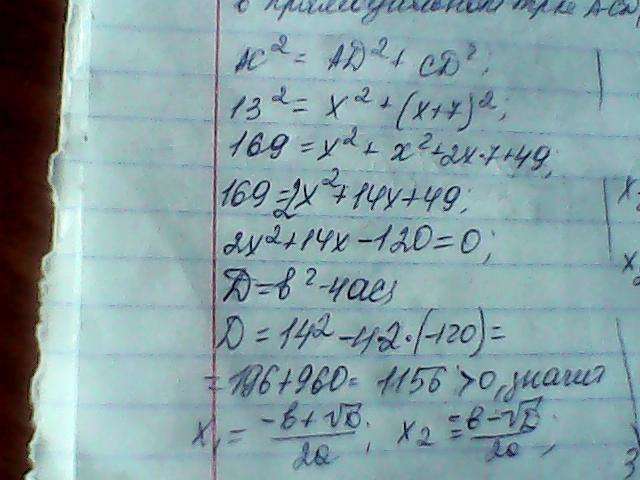 в прямоугольном тр-ке ACD
AC² = AD² + CD²;
13² = x² + (x+7)²;
169 = x² + x² + 2x·7+49;
169 = 2x² + 14x + 49;
2x² + 14x - 120 = 0;
D = b² - 4ac;
D = 14² - 4·2·(-120) =
= 196 + 960 = 1156 > 0, значит
x₁ = (-b + √D)/2a; x₂ = (-b - √D)/2a;